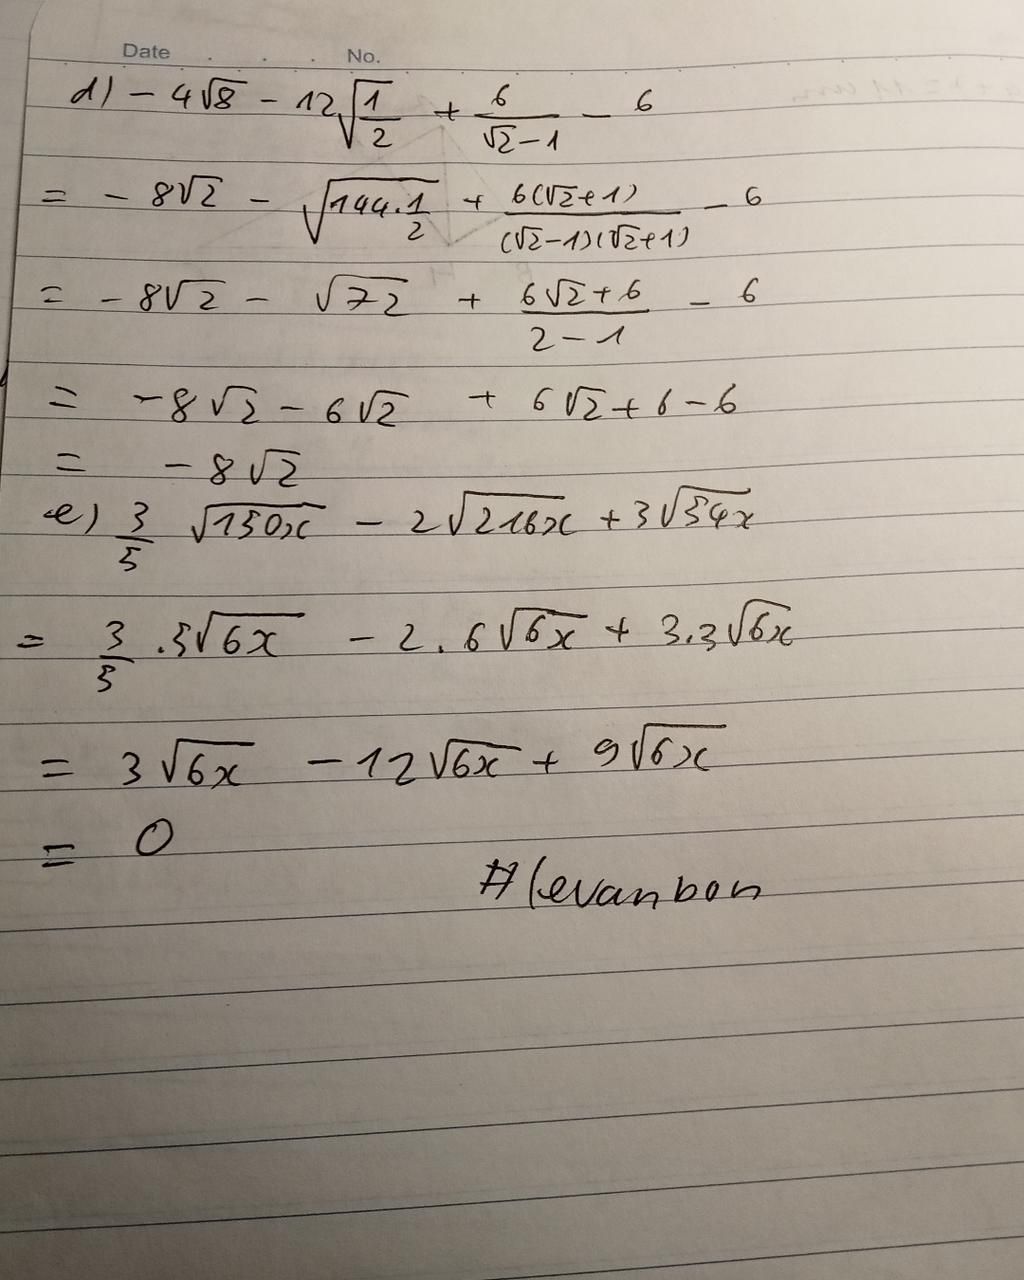 Date . . . . No.
d) - 4√8 - 12√(1/2) + 6/(√2-1) - 6
= - 8√2 - √(144.1/2) + 6(√2+1)/((√2-1)(√2+1)) - 6
= - 8√2 - √72 + (6√2+6)/(2-1) - 6
= - 8√2 - 6√2 + 6√2 + 6 - 6
= - 8√2
e) 3/5 √150x - 2√216x + 3√54x
= 3/5 .5√6x - 2.6√6x + 3.3√6x
= 3√6x - 12√6x + 9√6x
= 0
#levanbon